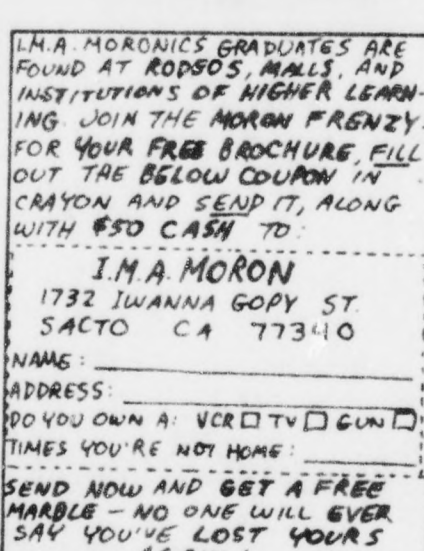 I.M.A. MORONICS GRADUATES ARE
FOUND AT RODEOS, MALLS, AND
INSTITUTIONS OF HIGHER LEARN-
ING. JOIN THE MORON FRENZY.
FOR YOUR FREE BROCHURE, FILL
OUT THE BELOW COUPON IN
CRAYON AND SEND IT, ALONG
WITH $50 CASH TO:
I.M.A. MORON
1732 IWANNA GOPY ST.
SACTO CA 77340
NAME:
ADDRESS:
DO YOU OWN A: VCR □ TV □ GUN □
TIMES YOU'RE NOT HOME:
SEND NOW AND GET A FREE
MARBLE - NO ONE WILL EVER
SAY YOU'VE LOST YOURS